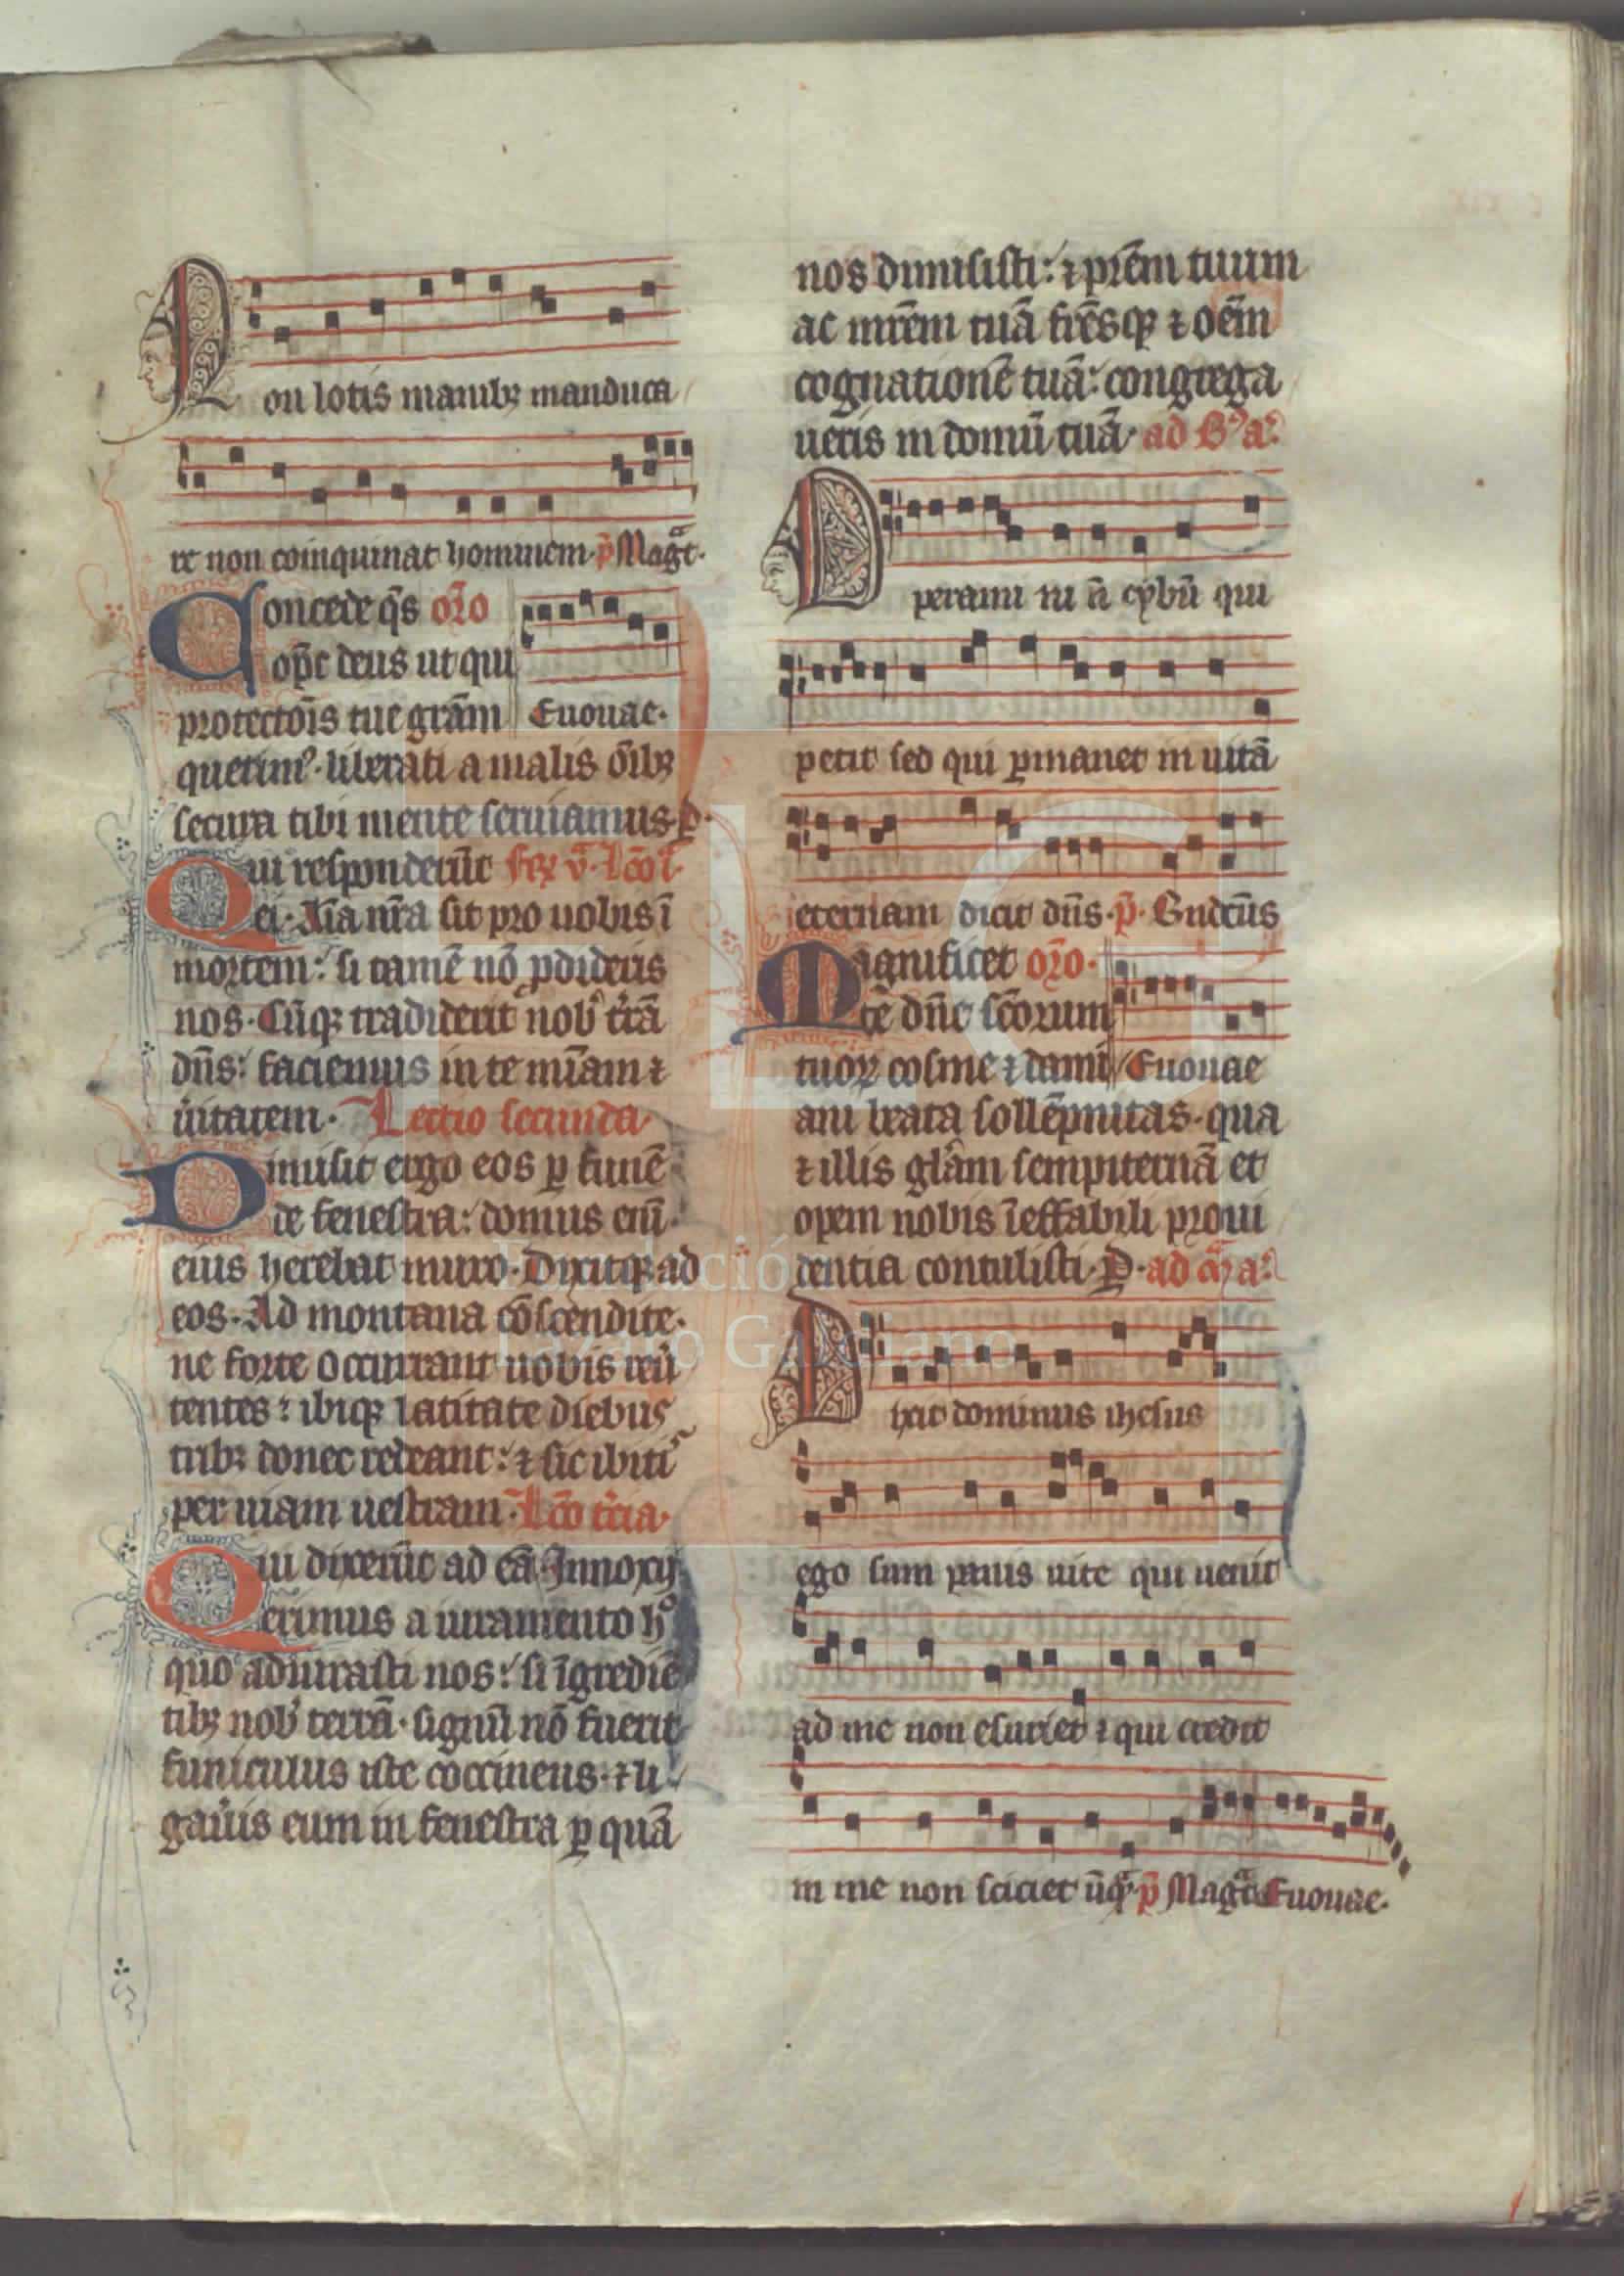 Non lotis manibꝫ manduca
re non coinquinat hominem. p̄s Magᷓt.
Concede qs̄ oro
op̄c deus ut qui
protectōis tue grām Euouae.
querimꝰ. liberati a malis oībꝫ
secura tibi mente seruiamus. p.
Qui responderūt fer v. lc̄o i.
ei. Aīa nr̄a sit pro uobis ī
mortem: si tamē nō ꝓdideris
nos. Cūqꝫ tradiderit nob̾ tr̄ā
dn̄s: faciemus in te mīam ⁊
ūitatem. Lectio secunda
Dimisit ergo eos ꝑ funē
de fenestra: domus enī
eius herebat muro. Dixitqꝫ ad
eos. Ad montana cōscendite.
ne forte occurrant uobis reū
tentes: ibiqꝫ latitate diebus
tribꝫ donec redeant: ⁊ sic ibiti
per uiam uestram. Lc̄o tc̄ia.
Qui dixerūt ad eā. Innoxij
erimus a iuramento hͦ
quo adiurasti nos: si īgrediē
tibꝫ nob̾ terrā. signū nō fuerit
funiculus iste coccineus. ⁊ li
gau̾is eum in fenestra ꝑ quā
nos dimisisti: ⁊ pr̄em tuum
ac mr̄em tuā fr̄esqꝫ ⁊ oēm
cognationē tuā: congrega
ueris in domū tuā. ad B̾ aͣ.
Operamini n̄ cybū qui
petit sed qui ꝑmanet in uitā
eternam dicit dn̄s. p̄s. Bndc̄us
Magnificet oro.
te dn̄e sc̄orum
tuoꝝ cosme ⁊ dami Euouae
ani beata sollēpnitas. qua
⁊ illis gl̄am sempiternā et
opem nobis īeffabili proui
dentia contulisti. P. ad m̄ aͣ.
Dixit dominus ihesus
ego sum panis uite qui uenit
ad me non esuriet ⁊ qui credit
in me non sciciet ūqᷓ. p̄s Magᷓt Euouae.
Fundación
Lázaro Galdiano